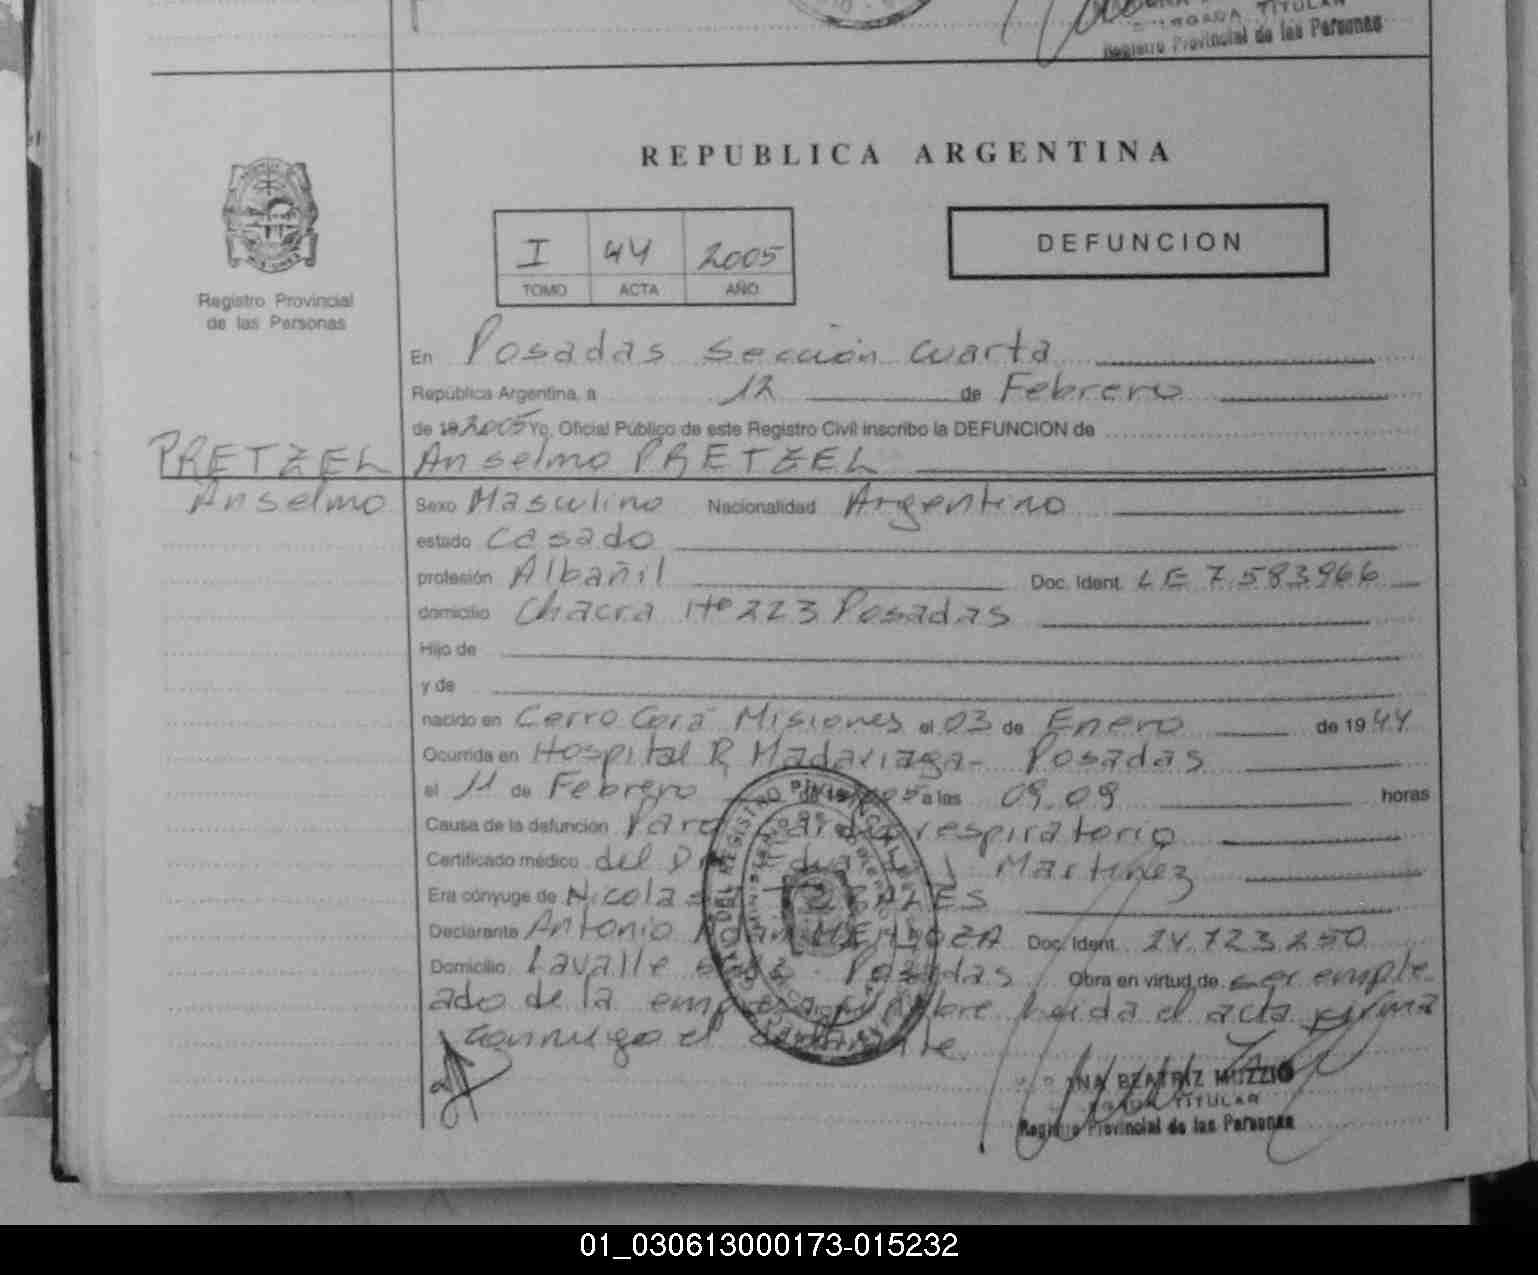 TITULAR
Registro Provincial de las Personas
REPUBLICA ARGENTINA
DEFUNCION
I 44 2005
TOMO ACTA AÑO
Registro Provincial
de las Personas
En Posadas sección cuarta
República Argentina, a 12 de Febrero
de 19 2005 Yo, Oficial Público de este Registro Civil inscribo la DEFUNCION de
PRETZEL Anselmo PRETZEL
Anselmo
Sexo Masculino Nacionalidad Argentino
estado Casado
profesión Albañil Doc. Ident. LE 7.583.966
domicilio Chacra 223 Posadas
Hijo de
y de
nacido en Cerro Corá Misiones el 03 de Enero de 1944
Ocurrida en Hospital R. Madariaga - Posadas
el 11 de Febrero de 2005 a las 09.09 horas
Causa de la defunción Paro cardiorespiratorio
Certificado médico del Martinez
Era cónyuge de
Declarante Antonio Doc. Ident. 24.723.250
Domicilio Lavalle Posadas Obra en virtud de ser emple
ado de la empresa fúnebre leida el acta firma
conmigo el declarante.
BEATRIZ MUZZIO
TITULAR
Registro Provincial de las Personas
01_030613000173-015232